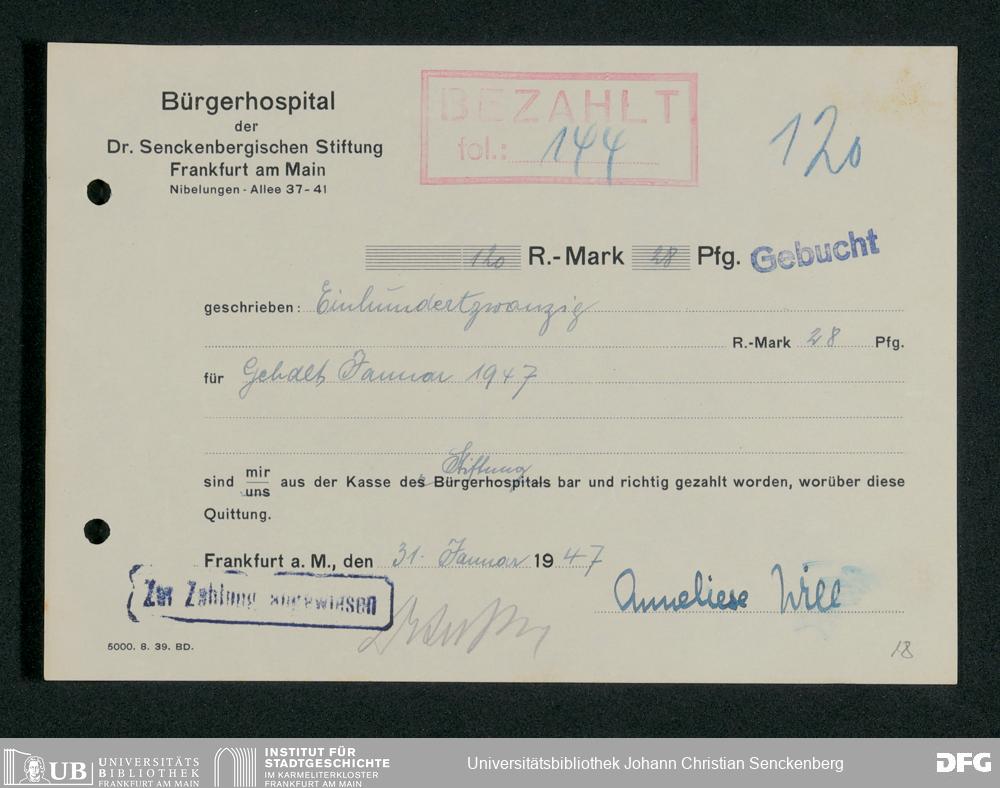 Bürgerhospital
der
Dr. Senckenbergischen Stiftung
Frankfurt am Main
Nibelungen - Allee 37-41
BEZAHLT
fol.: 144
120
120 R.-Mark 28 Pfg. Gebucht
geschrieben: Einhundertzwanzig
R.-Mark 28 Pfg.
für Gehalt Januar 1947
Stiftung
sind mir aus der Kasse des Bürgerhospitals bar und richtig gezahlt worden, worüber diese
uns
Quittung.
Frankfurt a. M., den 31. Januar 1947
Zur Zahlung angewiesen
Anneliese Will
5000. 8. 39. BD.
18
UB UNIVERSITÄTS
BIBLIOTHEK
FRANKFURT AM MAIN
INSTITUT FÜR
STADTGESCHICHTE
IM KARMELITERKLOSTER
FRANKFURT AM MAIN
Universitätsbibliothek Johann Christian Senckenberg
DFG